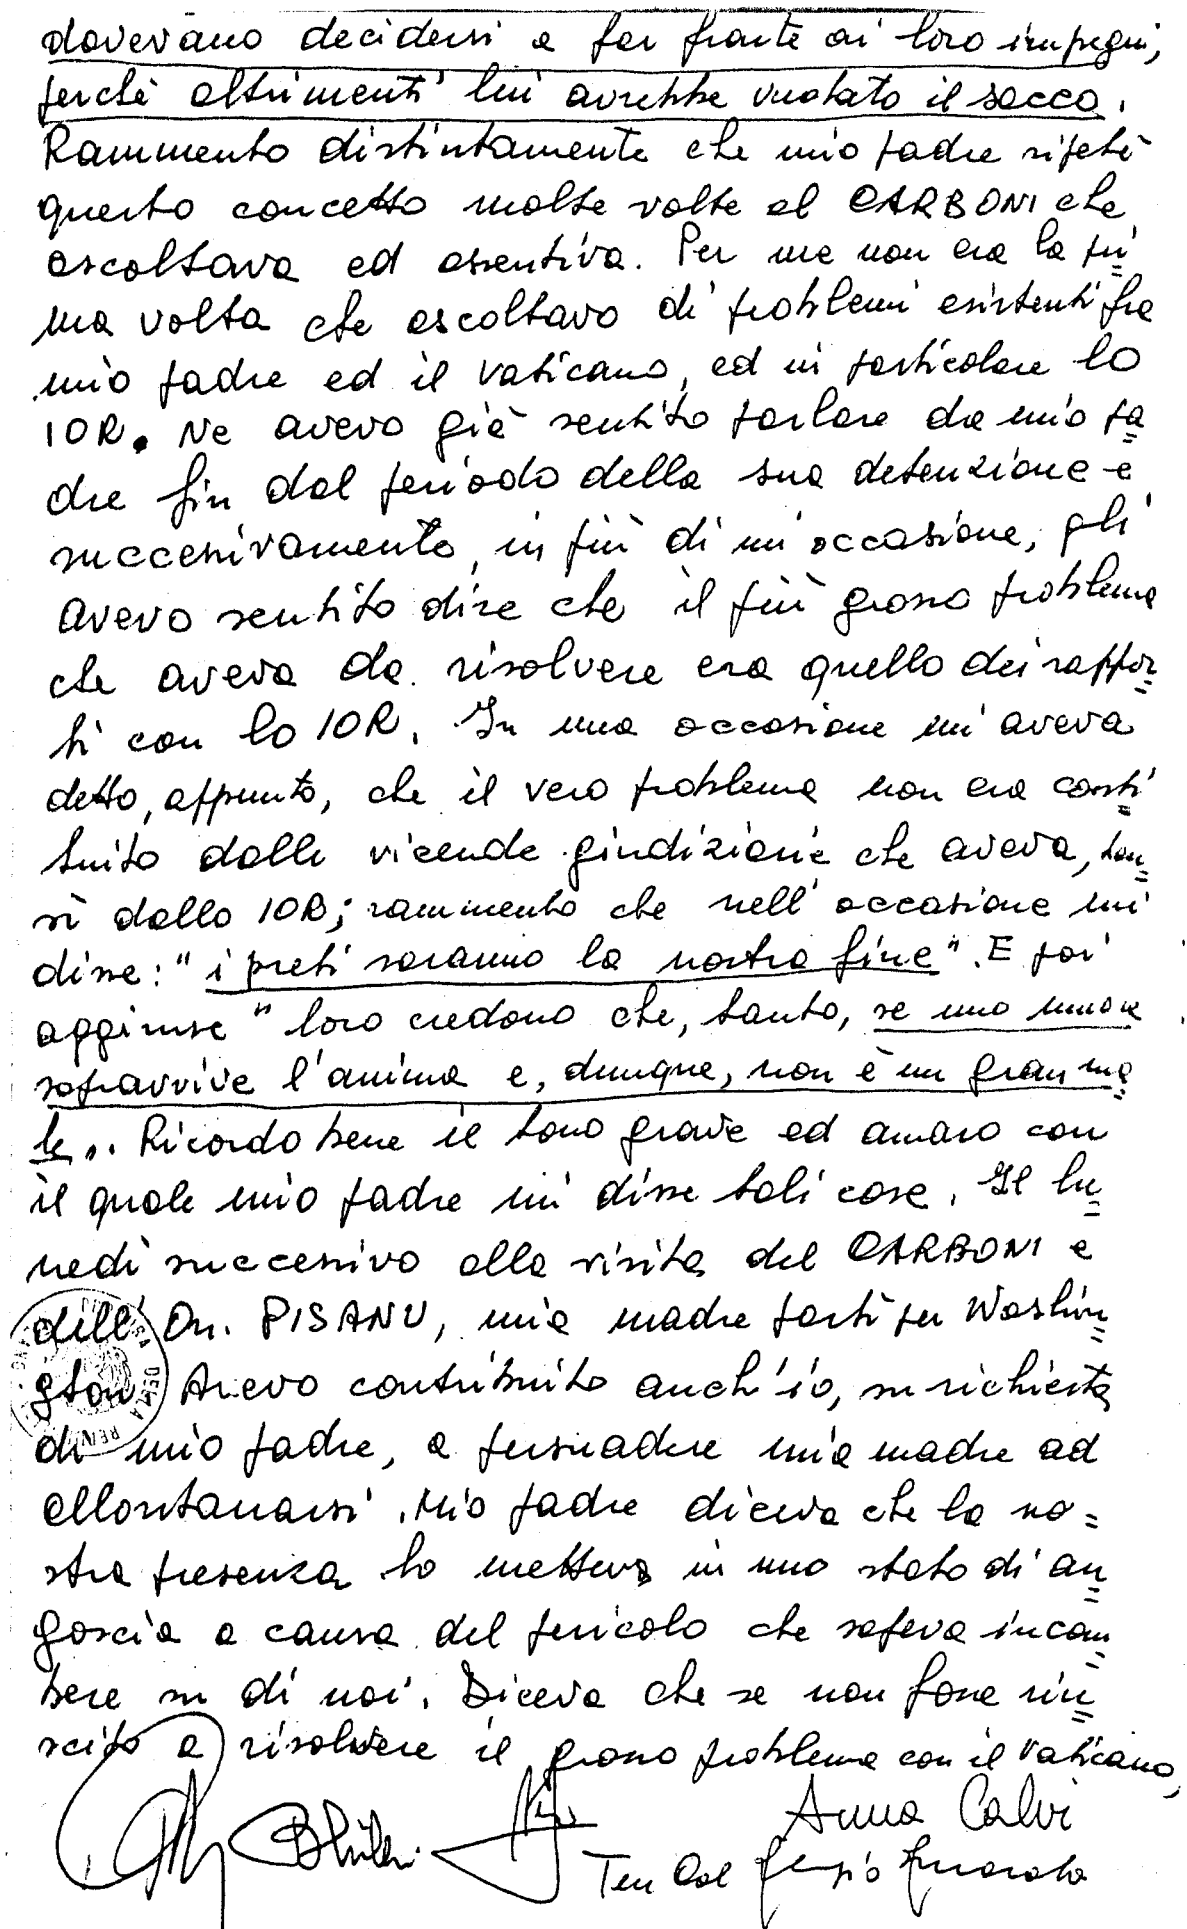 dovevano decidersi a far fronte ai loro impegni,
perché altrimenti lui avrebbe vuotato il sacco.
Rammento distintamente che mio padre ripeté
questo concetto molte volte al CARBONI che
ascoltava ed assentiva. Per me non era la pri=
ma volta che ascoltavo di problemi esistenti fra
mio padre ed il Vaticano, ed in particolare lo
IOR. Ne avevo già sentito parlare da mio pa=
dre fin dal periodo della sua detenzione e
successivamente, in più di un'occasione, gli
avevo sentito dire che il più grosso problema
che aveva da risolvere era quello dei rappor=
ti con lo IOR. In una occasione mi aveva
detto, appunto, che il vero problema non era costi=
tuito dalle vicende giudiziarie che aveva, ben=
sì dallo IOR; rammento che nell'occasione mi
disse: "i preti saranno la nostra fine". E poi
aggiunse "loro credono che, tanto, se uno muore
sopravvive l'anima e, dunque, non è un gran ma=
le". Ricordo bene il tono grave ed amaro con
il quale mio padre mi disse tali cose. Il lu=
nedì successivo alla visita del CARBONI e
dell'On. PISANU, mia madre partì per Washin=
gton. Avevo contribuito anch'io, su richiesta
di mio padre, a persuadere mia madre ad
allontanarsi. Mio padre diceva che la no=
stra presenza lo metteva in uno stato di an=
goscia a causa del pericolo che sapeva incom=
bere su di noi. Diceva che se non fosse riu=
scito a risolvere il grosso problema con il Vaticano,
Anna Calvi
Ten Col